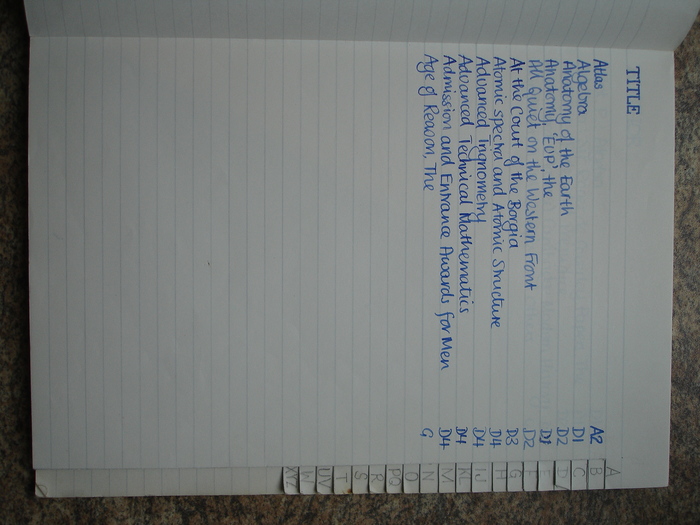 TITLE
Atlas A2
Algebra D1
Anatomy of the Earth D2
Anatomy, 'EUP', the D1
All Quiet on the Western Front D2
At the Court of the Borgia D3
Atomic spectra and Atomic Structure D4
Advanced Trignometry D4
Advanced Technical Mathematics D4
Admission and Entrance Awards for Men D4
Age of Reason, The G
A
B
C
G
H
IJ
KL
M
N
O
PQ
R
S
T
UV
W
XYZ